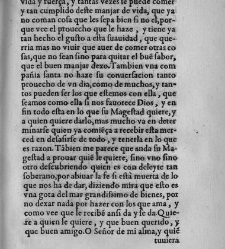 vida y fuerça, y tantas vezes le puede comer
tan cumplido deste manjar de vida, que ya
no coman cosa que les sepa bien si no el, por-
que vee el prouecho que le haze, y tiene ya
tan hecho el gusto a esta suauidad, que que-
rria mas no viuir que auer de comer otras co
sas, que no sean sino para quitar el buē sabor,
que el buen manjar dexo. Tambien vna com
pañia santa no haze su conuersacion tanto
prouecho de vn dia, como de muchos, y tan-
tos pueden ser los que estemos con ella, que
seamos como ella si nos fauorece Dios, y en
fin todo esta en lo que su Magestad quiere, y
a quien quiere darlo, mas mucho va en deter
minarse quien ya comiēça a recebir esta mer-
ced en desasirse de todo, y tenerla en lo que
es razon. Tābien me parece que anda su Ma-
gestad a prouar quiē le quiere, sino vno sino
otro descubriendo quien es con deleyte tan
soberano, por abiuar la fe si esta muerta de lo
que nos ha de dar, diziendo mira que esto es
vna gota del mar grandissimo de bienes, por
no dexar nada por hazer con los que ama, y
como vee que le recibē ansi da y se da. Quie-
re a quien le quiere, y que buen querido, y
que buen amigo. O Señor de mi alma, y quiē
tuuiera